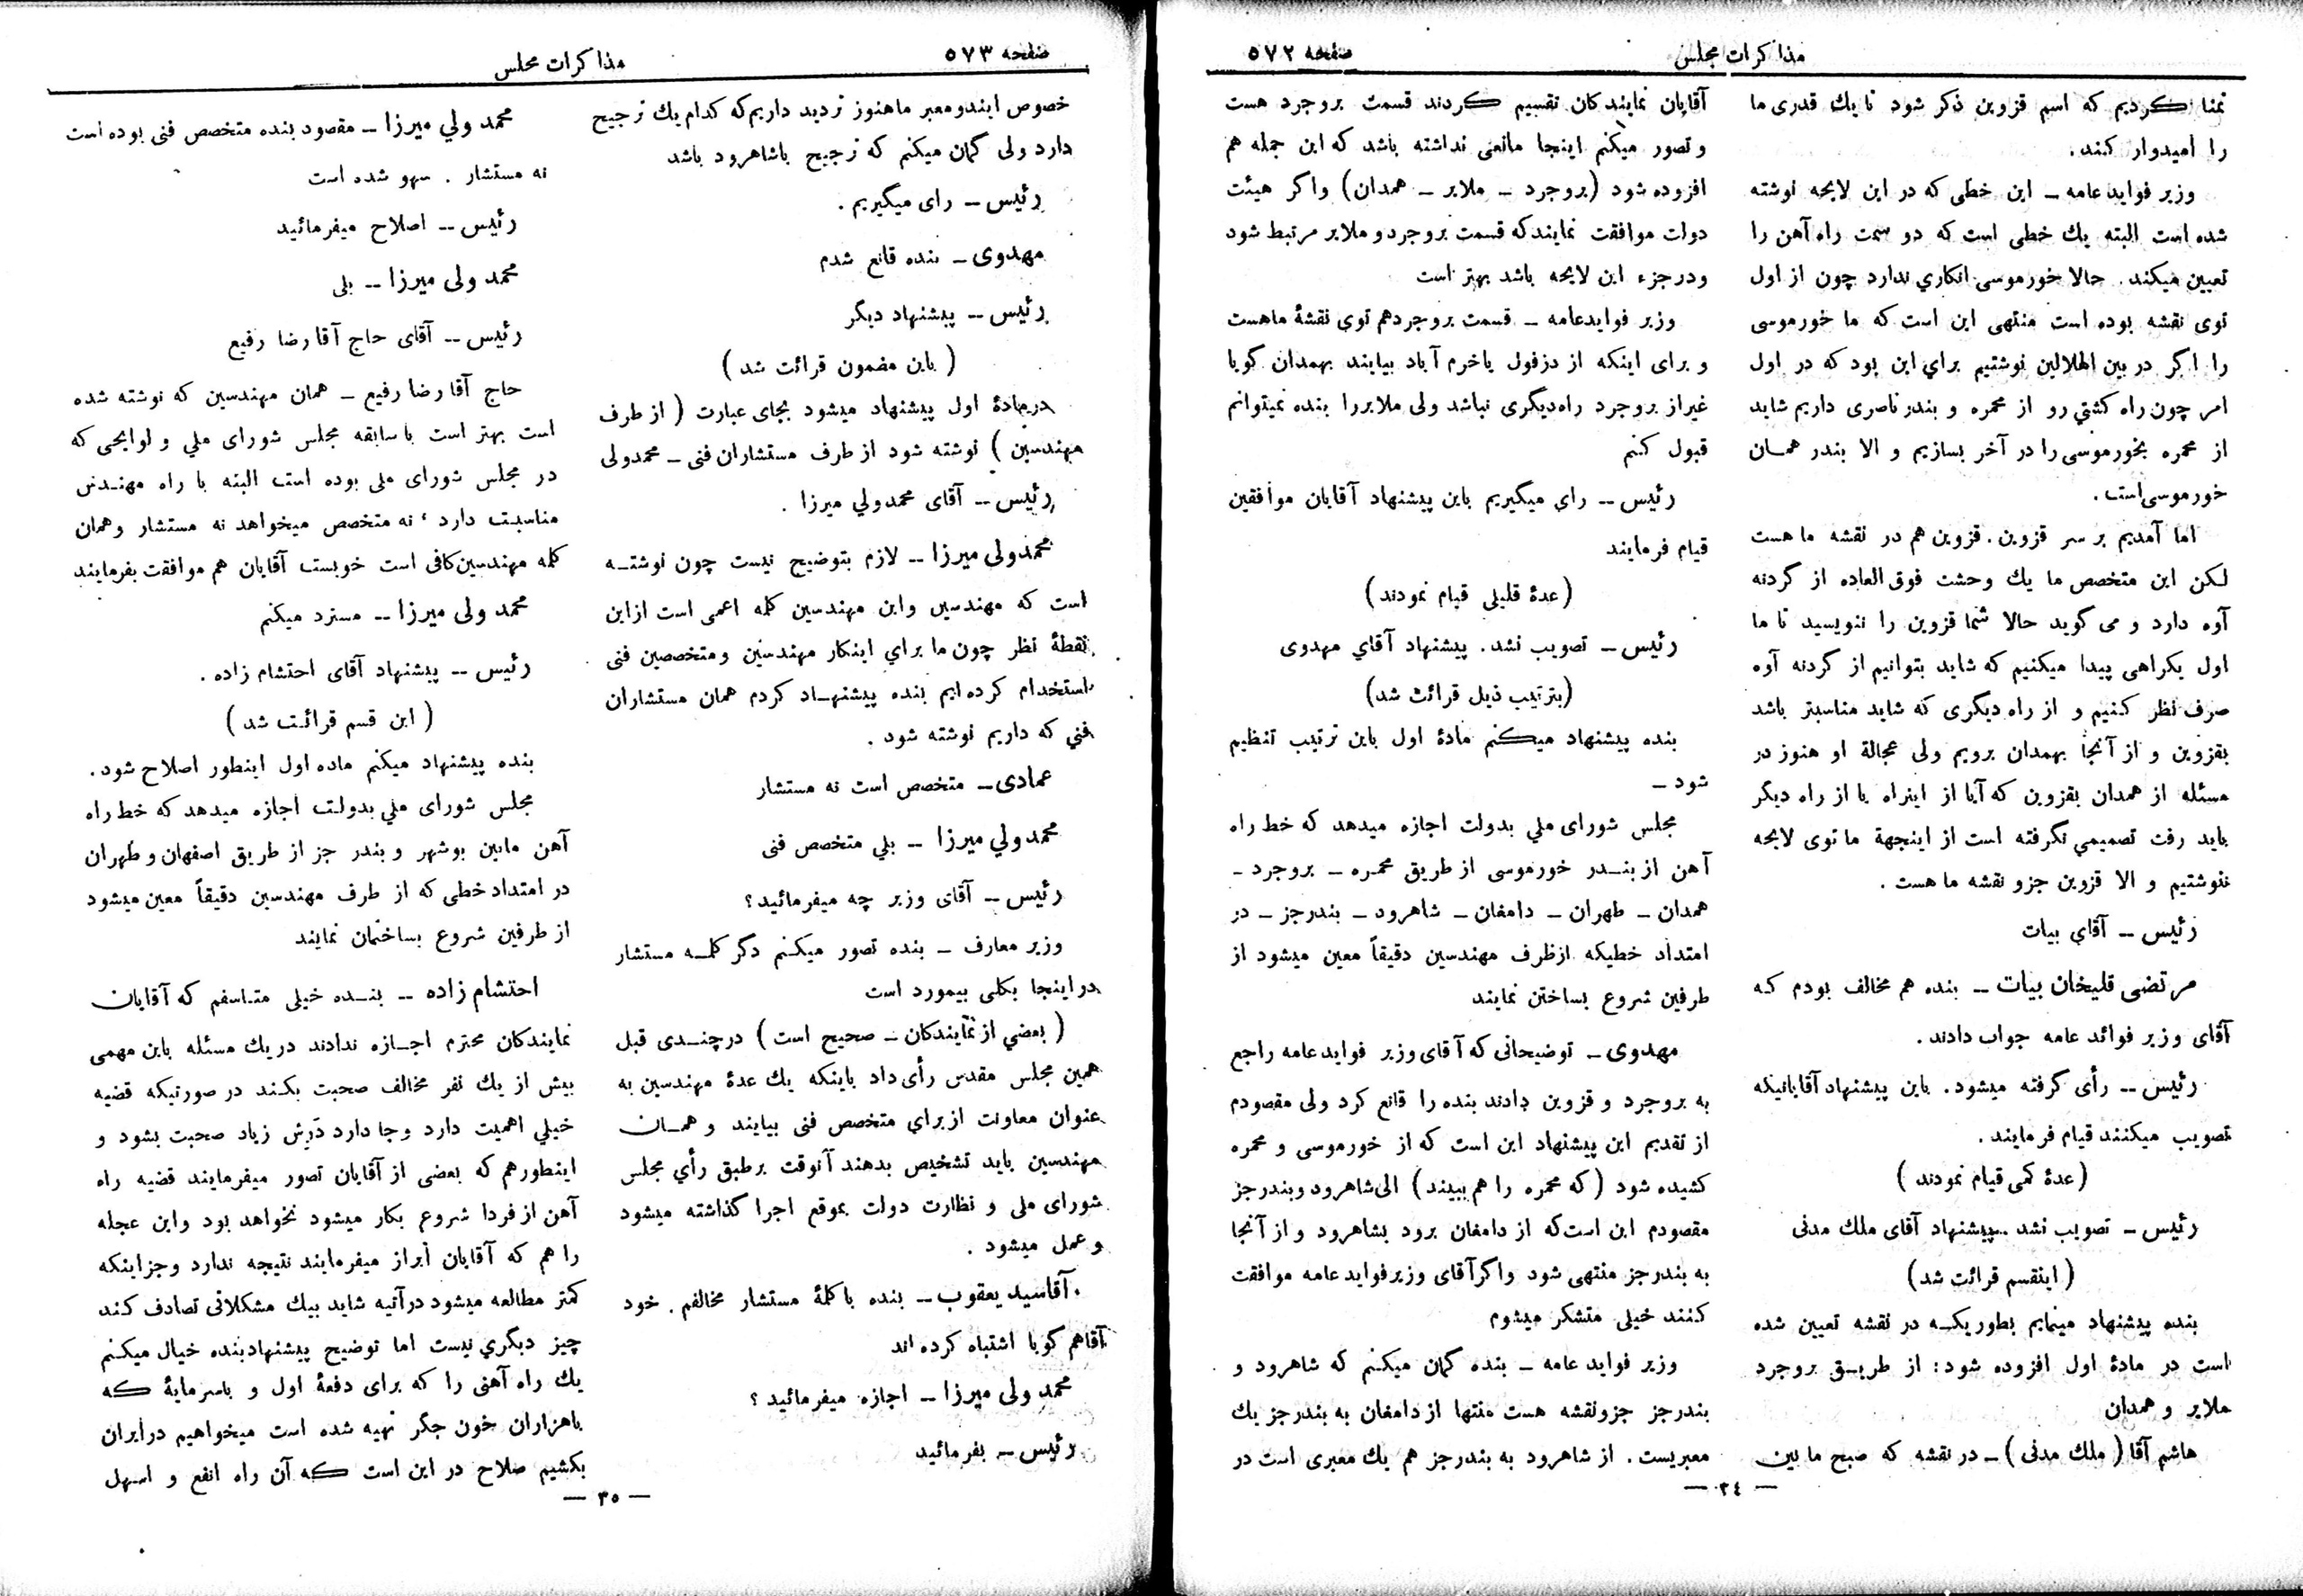 مذاکرات مجلس
صفحه ۵۷۲
تمنا کردیم که اسم قزوین ذکر شود تا یك قدری ما
را امیدوار کند.
وزیر فواید عامه ــ این خطی که در این لایحه نوشته
شده است البته یك خطی است که دو سمت راه آهن را
تعیین میکند. حالا خورموسی انکاري ندارد چون از اول
توی نقشه بوده است منتهی این است که ما خورموسی
را اگر در بین الهلالین نوشتیم براي این بود که در اول
امر چون راه کشتي رو از محمره و بندر ناصری داریم شاید
از محمره بخورموسی را در آخر بسازیم و الا بندر همان
خورموسی است.
اما آمدیم بر سر قزوین. قزوین هم در نقشه ما هست
لکن این متخصص ما یك وحشت فوق العاده از گردنه
آوه دارد و می گوید حالا شما قزوین را ننویسید تا ما
اول یکراهی پیدا میکنیم که شاید بتوانیم از گردنه آوه
صرف نظر کنیم و از راه دیگری که شاید مناسبتر باشد
بقزوین و از آنجا بهمدان برویم ولی عجالة او هنوز در
مسئله از همدان بقزوین که آیا از اینراه یا از راه دیگر
باید رفت تصمیمي نگرفته است از اینجهة ما توی لایحه
ننوشتیم و الا قزوین جزو نقشه ما هست.
رئیس ــ آقاي بیات
مرتضی قلیخان بیات ــ بنده هم مخالف بودم که
آقای وزیر فوائد عامه جواب دادند.
رئیس ــ رأی گرفته میشود. باین پیشنهاد آقایانیکه
تصویب میکنند قیام فرمایند.
(عدهٔ کمی قیام نمودند)
رئیس ــ تصویب نشد ــ پیشنهاد آقای ملك مدنی
(اینقسم قرائت شد)
بنده پیشنهاد مینمایم بطوریکه در نقشه تعیین شده
است در مادهٔ اول افزوده شود: از طریق بروجرد
ملایر و همدان
هاشم آقا (ملك مدنی) ــ در نقشه که صبح ما بین
آقایان نمایندکان تقسیم کردند قسمت بروجرد هست
و تصور میکنم اینجا مانعی نداشته باشد که این جمله هم
افزوده شود (بروجرد ــ ملایر ــ همدان) واگر هیئت
دولت موافقت نمایند که قسمت بروجرد و ملایر مرتبط شود
و در جزء این لایحه باشد بهتر است
وزیر فوایدعامه ــ قسمت بروجردهم توی نقشهٔ ماهست
و برای اینکه از دزفول یا خرم آباد بیایند بهمدان گویا
غیراز بروجرد راه‌دیگری نباشد ولی ملایررا بنده نمیتوانم
قبول کنم
رئیس ــ راي میگیریم باین پیشنهاد آقایان موافقین
قیام فرمایند
(عدهٔ قلیلی قیام نمودند)
رئیس ــ تصویب نشد. پیشنهاد آقاي مهدوی
(بترتیب ذیل قرائت شد)
بنده پیشنهاد میکنم مادهٔ اول باین ترتیب تنظیم
شود ــ
مجلس شورای ملي بدولت اجازه میدهد که خط راه
آهن از بندر خورموسی از طریق محمره ــ بروجرد ــ
همدان ــ طهران ــ دامغان ــ شاهرود ــ بندرجز ــ در
امتداد خطیکه ازطرف مهندسین دقیقاً معین میشود از
طرفین شروع بساختن نمایند
مهدوی ــ توضیحاتی که آقای وزیر فواید عامه راجع
به بروجرد و قزوین دادند بنده را قانع کرد ولی مقصودم
از تقدیم این پیشنهاد این است که از خورموسی و محمره
کشیده شود (که محمره را هم ببیند) الی شاهرود و بندرجز
مقصودم این است که از دامغان برود بشاهرود و از آنجا
به بندرجز منتهی شود واگرآقای وزیرفواید عامه موافقت
کنند خیلی متشکر میشوم
وزیر فواید عامه ــ بنده گمان میکنم که شاهرود و
بندرجز جزو نقشه هست منتها از دامغان به بندرجز یك
معبریست. از شاهرود به بندرجز هم یك معبری است در
ــ ۳٤ ــ
صفحه ۵۷۳
مذاکرات مجلس
خصوص ایندومعبر ماهنوز تردید داریم که کدام یك ترجیح
دارد ولی گمان میکنم که ترجیح باشاهرود باشد
رئیس ــ رای میگیریم.
مهدوی ــ بنده قانع شدم
رئیس ــ پیشنهاد دیگر
(باین مضمون قرائت شد)
درمادهٔ اول پیشنهاد میشود بجای عبارت (از طرف
مهندسین) نوشته شود از طرف مستشاران فنی ــ محمدولی
رئیس ــ آقای محمدولي میرزا.
محمدولی میرزا ــ لازم بتوضیح نیست چون نوشته
است که مهندسین واین مهندسین کلمه اعمی است ازاین
نقطهٔ نظر چون ما براي اینکار مهندسین و متخصصین فنی
استخدام کرده ایم بنده پیشنهاد کردم همان مستشاران
فني که داریم نوشته شود.
عمادی ــ متخصص است نه مستشار
محمدولي میرزا ــ بلي متخصص فنی
رئیس ــ آقای وزیر چه میفرمائید؟
وزیر معارف ــ بنده تصور میکنم ذکر کلمه مستشار
در اینجا بکلی بیمورد است
(بعضي از نمایندکان ــ صحیح است) درچندی قبل
همین مجلس مقدس رأی داد باینکه یك عدهٔ مهندسین به
عنوان معاونت از براي متخصص فنی بیایند و همان
مهندسین باید تشخیص بدهند آنوقت برطبق رأي مجلس
شورای ملی و نظارت دولت بموقع اجرا گذاشته میشود
و عمل میشود.
آقاسید یعقوب ــ بنده با کلمهٔ مستشار مخالفم. خود
آقاهم گویا اشتباه کرده اند
محمد ولی میرزا ــ اجازه میفرمائید؟
رئیس ــ بفرمائید
محمد ولي میرزا ــ مقصود بنده متخصص فنی بوده است
نه مستشار. سهو شده است
رئیس ــ اصلاح میفرمائید
محمد ولی میرزا ــ بلی
رئیس ــ آقای حاج آقا رضا رفیع
حاج آقا رضا رفیع ــ همان مهندسین که نوشته شده
است بهتر است با سابقه مجلس شورای ملي و لوایحی که
در مجلس شورای ملی بوده است البته با راه مهندس
مناسبت دارد، نه متخصص میخواهد نه مستشار و همان
کلمه مهندسین کافی است خوبست آقایان هم موافقت بفرمایند
محمد ولی میرزا ــ مسترد میکنم
رئیس ــ پیشنهاد آقای احتشام زاده.
(این قسم قرائت شد)
بنده پیشنهاد میکنم ماده اول اینطور اصلاح شود.
مجلس شورای ملي بدولت اجازه میدهد که خط راه
آهن مابین بوشهر و بندر جز از طریق اصفهان و طهران
در امتداد خطی که از طرف مهندسین دقیقاً معین میشود
از طرفین شروع بساختمان نمایند
احتشام زاده ــ بنده خیلی متاسفم که آقایان
نمایندکان محترم اجازه ندادند دریك مسئله باین مهمی
بیش از یك نفر مخالف صحبت بکند در صورتیکه قضیه
خیلي اهمیت دارد وجا دارد زیاد صحبت بشود و
اینطورهم که بعضی از آقایان تصور میفرمایند قضیه راه
آهن از فردا شروع بکار میشود نخواهد بود واین عجله
را هم که آقایان أبراز میفرمایند نتیجه ندارد وجزاینکه
کمتر مطالعه میشود درآتیه شاید بیك مشکلاتی تصادف کند
چیز دیگري نیست اما توضیح پیشنهادبنده خیال میکنم
یك راه آهنی را که برای دفعهٔ اول و باسرمایهٔ که
باهزاران خون جگر تهیه شده است میخواهیم در ایران
بکشیم صلاح در این است که آن راه انفع و اسهل
ــ ۳۵ ــ